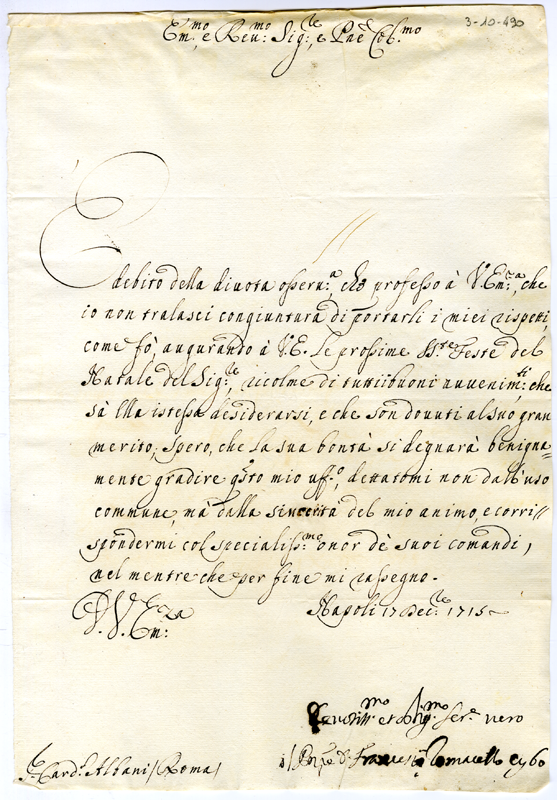 3-10-490
Em.mo, e Reu:mo Sig:re, e Pãe Col.mo
E debito della diuota osseru:a, che professo à V. Em:za, che
io non tralasci congiuntura di portarli i miei rispetti,
come fò, augurando à V. E. Le prossime SS.te Feste del
Natale del Sig:re, ricolme di tutti i buoni auuenim:ti, che
sà Ella istessa desiderarsi, e che son douuti al suo gran
merito; spero, che la sua bontà si degnarà benigna=
mente gradire q:sto mio uff:o, dettatomi non dall'uso
commune, mà dalla sincerità del mio animo, e corri=
spondermi col specialiss:mo onor dè suoi comandi,
nel mentre che per fine mi rassegno.
D. V. Em:za
Napoli 17 Dec:re 1715
Deuotiss.mo et oblig.mo Ser.e uero
il Prñpe D. Francesco Tomacello Cybo
S.r Card.l Albani / Roma /